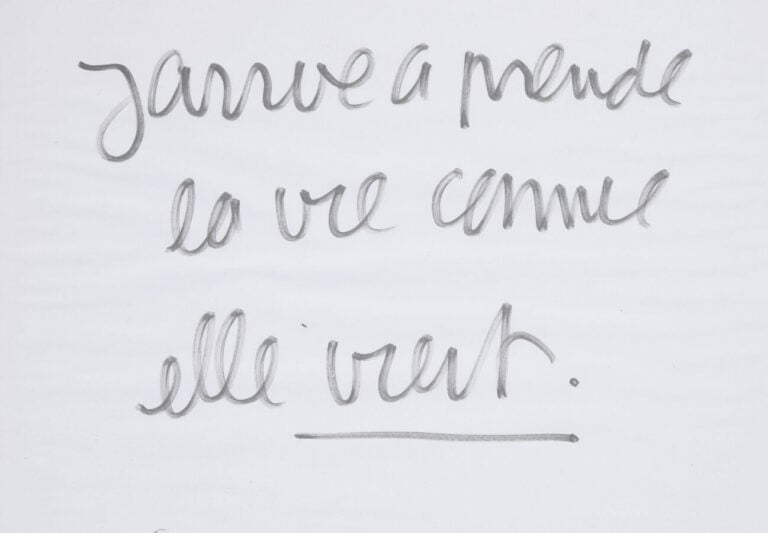 j'arrive a prendre
la vie comme
elle vient.